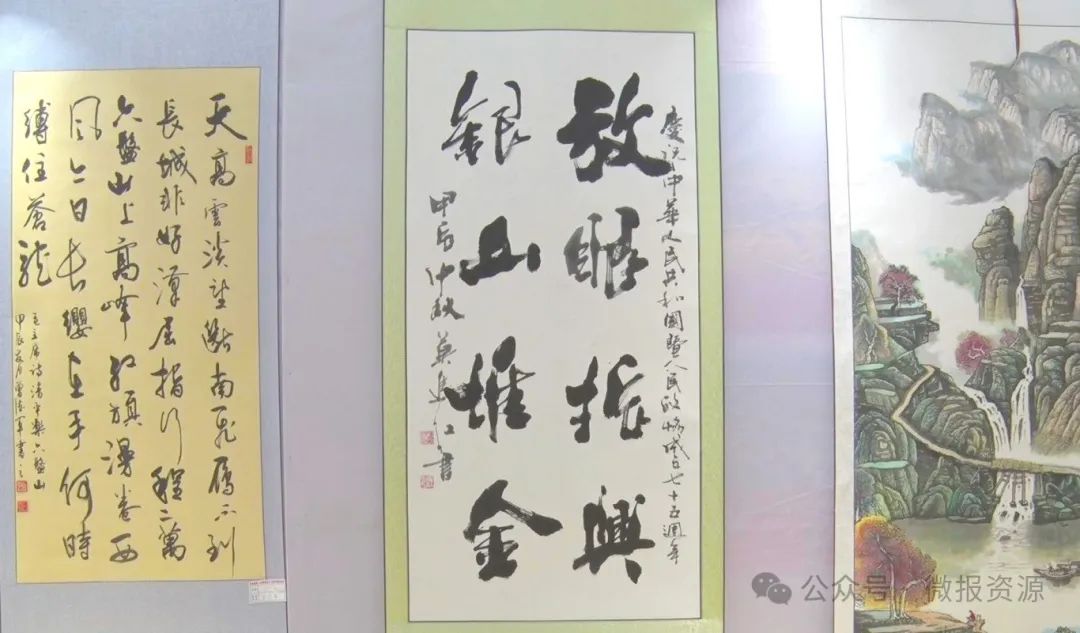 天高雲淡望斷南飛雁不到
長城非好漢屈指行程二萬
六盤山上高峰紅旗漫卷西
風今日長纓在手何時
縛住蒼龍
毛主席詩清平樂六盤山
甲辰月曾德軍書之
慶祝中華人民共和國暨人民政協成立七十五週年
放振興
銀山堆金
甲辰仲秋書
公众号·微报资源